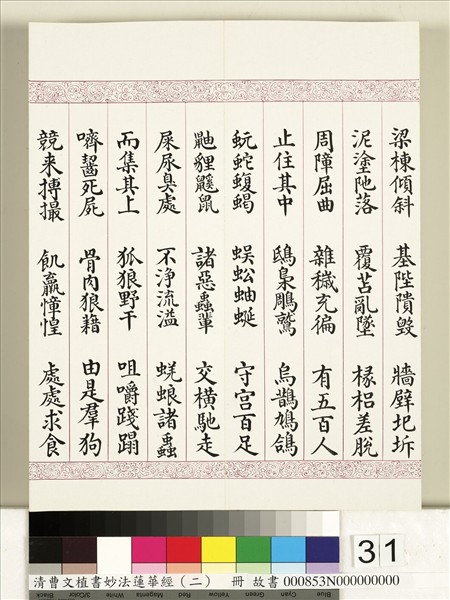 梁棟傾斜 基陛隤毀 牆壁圮坼
泥塗阤落 覆苫亂墜 椽梠差脫
周障屈曲 雜穢充徧 有五百人
止住其中 鴟梟鵰鷲 烏鵲鳩鴿
蚖蛇蝮蝎 蜈蚣蚰蜒 守宮百足
鼬貍鼷鼠 諸惡蟲輩 交橫馳走
屎尿臭處 不淨流溢 蜣蜋諸蟲
而集其上 狐狼野干 咀嚼踐蹋
嚌齧死屍 骨肉狼藉 由是羣狗
競来搏撮 飢羸慞惶 處處求食
31
Black 3/Color White Magenta Red Yellow Green Cyan Blue
清曹文植書妙法蓮華經（二） 冊 故書 000853N000000000